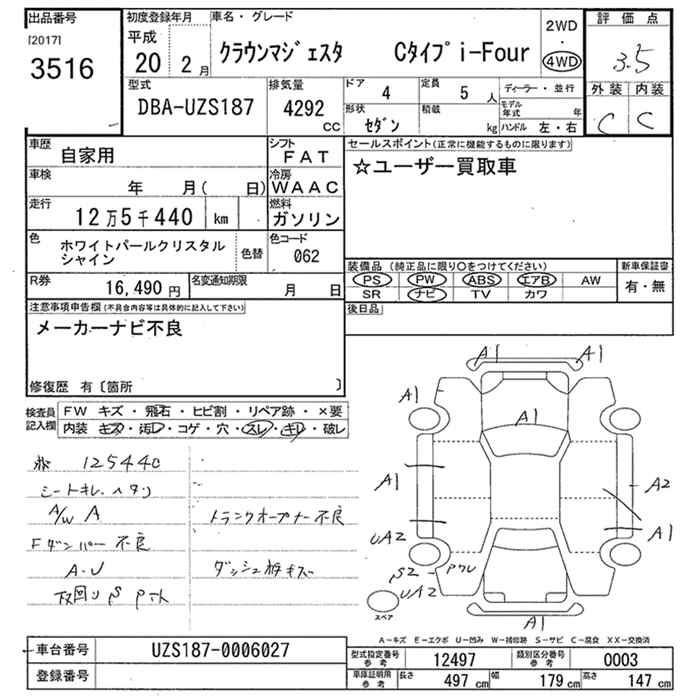 出品番号
[2017]
3516
初度登録年月
平成
20 2月
車名・グレード
クラウンマジェスタ Cタイプ i-Four
2WD
・
4WD
評価点
3.5
外装 内装
C C
型式
DBA-UZS187
排気量
4292
CC
ドア 4
定員 5 人
形状 セダン
積載 kg
ディーラー・並行
モデル年式 年
ハンドル 左・右
車歴 自家用
シフト FAT
車検 年 月( 日)
冷房 WAAC
走行 12万5千440 km
燃料 ガソリン
色 ホワイトパールクリスタル
シャイン
色替
色コード 062
R券 16,490 円
名変通知期限 月 日
セールスポイント(正常に機能するものに限ります)
☆ユーザー買取車
装備品(純正品に限り○をつけてください)
PS PW ABS エアB AW
SR ナビ TV カワ
新車保証書
有・無
注意事項申告欄(不具合内容等は具体的に記入して下さい)
メーカーナビ不良
修復歴 有〔箇所 〕
後日品
検査員
記入欄
FW キズ・飛石・ヒビ割・リペア跡・×要
内装 キズ・汚レ・コゲ・穴・スレ・キレ・破レ
125440
シートキレ、ヘタリ
A/W A
Fダンパー不良
A-U
下回り S
トランクオープナー不良
ダッシュ板キズ
A1 A1
A1
A1
A1
A2
UA2
A1
S2
UA2
A1
スペア
A-キズ E-エクボ U-凹み W-補修跡 S-サビ C-腐食 XX-交換済
車台番号 UZS187-0006027
登録番号
型式指定番号
参考
12497
類別区分番号
参考
0003
車庫証明用
参考
長さ 497 cm
幅 179 cm
高さ 147 cm